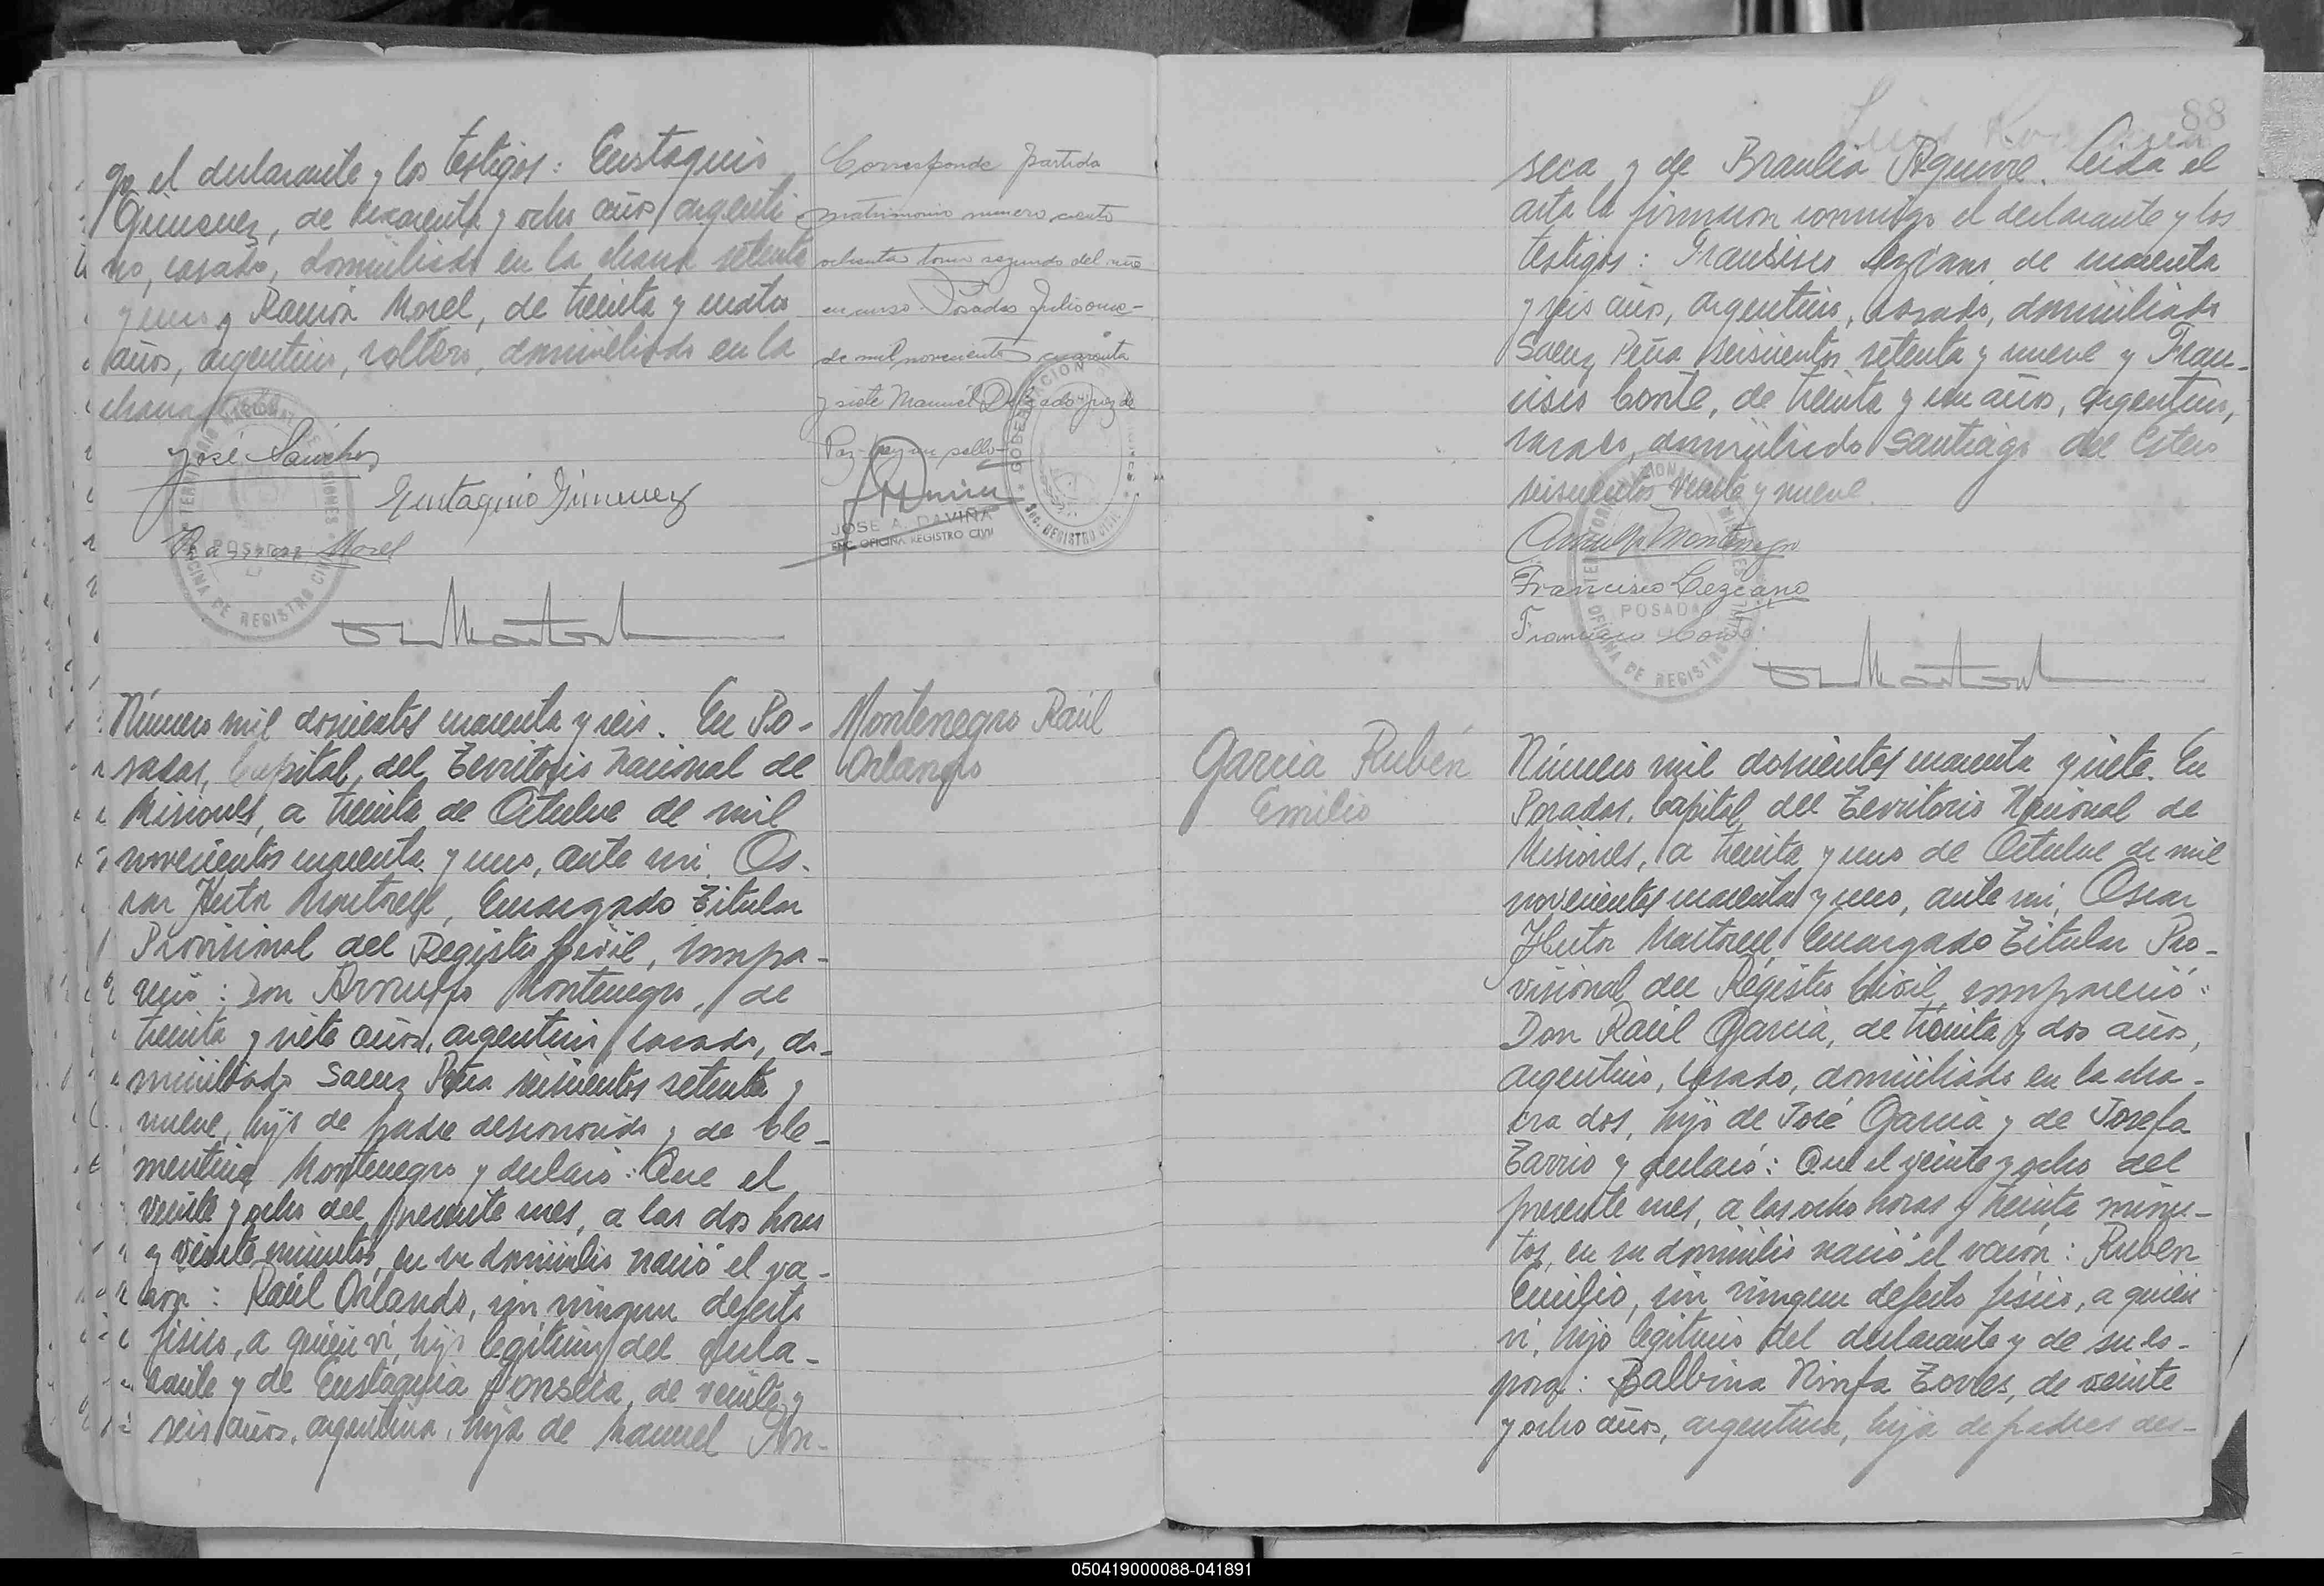 go el declarante y los testigos: Eustaquio
Gimenez, de cuarenta y ocho años, argenti-
no, casado, domiciliado en la chacra setenta
y uno y Ramón Morel, de treinta y cuatro
años, argentino, soltero, domiciliado en la
chacra
José Sanchez
Eustaquio Gimenez
Ramon Morel
TERRITORIO NACIONAL DE MISIONES
POSADAS
OFICINA DE REGISTRO CIVIL
Corresponde partida
matrimonio numero ciento
ochenta tomo segundo del año
en curso. Posadas Julio once
de mil novecientos cuarenta
y siete Manuel Delgado Juez de
Paz hay un sello
JOSE A. DAVIÑA
ENC. OFICINA REGISTRO CIVIL
GOBERNACION
SEC. REGISTRO CIVIL
Número mil doscientos cuarenta y seis. En Po-
sadas, Capital del Territorio Nacional de
Misiones, a treinta de Octubre de mil
novecientos cuarenta y uno, ante mi, Os-
car Hector Martorell, Encargado Titular
Provisional del Registro Civil, compa-
reció: Don Arnulfo Montenegro, de
treinta y siete años, argentino, casado, do-
miciliado Saenz Peña seiscientos setenta y
nueve, hijo de padre desconocido y de Cle-
mentina Montenegro y declaró: Que el
veinte y ocho del presente mes, a las dos horas
y veinte minutos, en su domicilio nació el va-
ron: Raúl Orlando, sin ningun defecto
fisico, a quien vi, hijo legitimo del decla-
rante y de Eustaquia Fonseca, de veinte y
seis años, argentina, hija de Manuel Fon-
Montenegro Raúl
Orlando
88
seca y de Braulia Aguirre. Leida el
acta la firmaron conmigo el declarante y los
testigos: Francisco Lezcano, de cuarenta
y seis años, argentino, casado, domiciliado
Saenz Peña seiscientos setenta y nueve y Fran-
cisco Conte, de treinta y un años, argentino,
casado, domiciliado Santiago del Estero
seiscientos veinte y nueve.
Arnulfo Montenegro
Francisco Lezcano
Francisco Conte
POSADAS
OFICINA DE REGISTRO CIVIL
García Rubén
Emilio
Número mil doscientos cuarenta y siete. En
Posadas, Capital del Territorio Nacional de
Misiones, a treinta y uno de Octubre de mil
novecientos cuarenta y uno, ante mi, Oscar
Hector Martorell Encargado Titular Pro-
visional del Registro Civil, compareció:
Don Raúl García, de treinta y dos años,
argentino, casado, domiciliado en la cha-
cra dos, hijo de José García y de Josefa
Tarrio y declaró: Que el veinte y ocho del
presente mes, a las ocho horas y treinta minu-
tos, en su domicilio nació el varón: Rubén
Emilio, sin ningun defecto fisico, a quien
vi, hijo legitimo del declarante y de su es-
posa: Balbina Ninfa Torres, de veinte
y ocho años, argentina, hija de padres des-
050419000088-041891